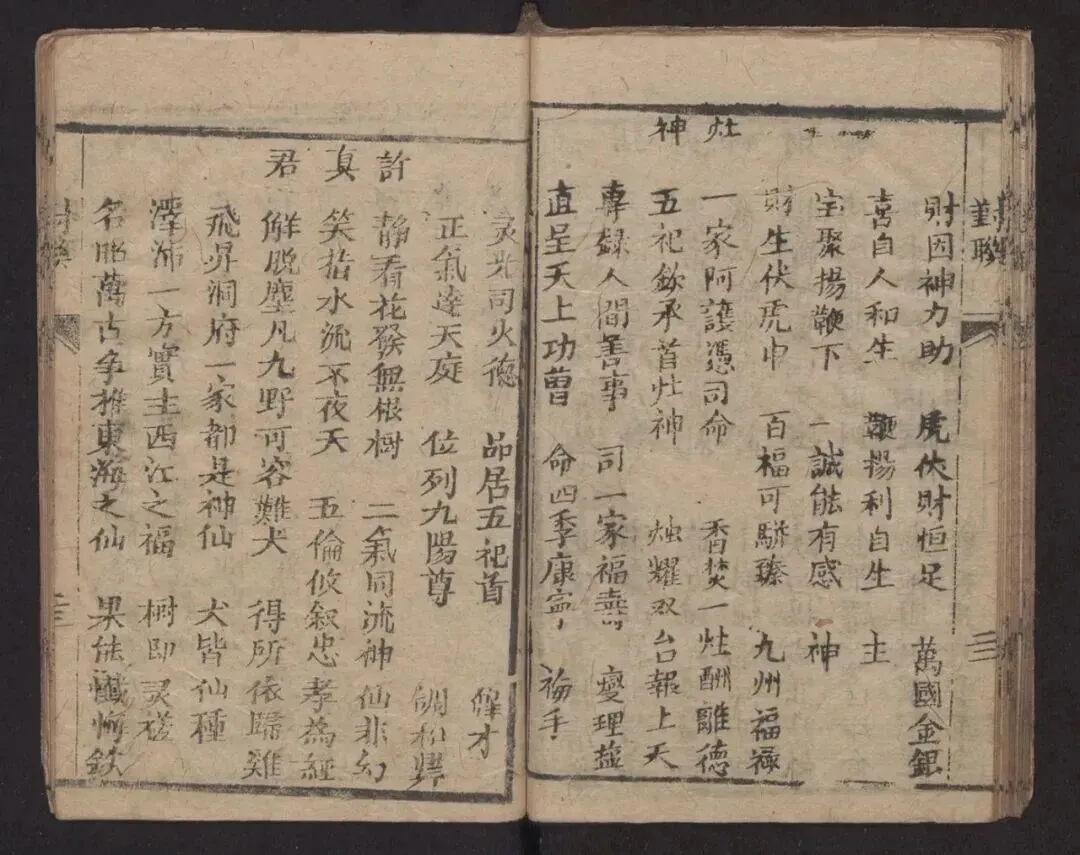 對聯 三
財因神力助 虎伏財恒足 萬國金銀
喜自人和生 鞭揚利自生 主
宝聚揚鞭下 一誠能有感 神
財生伏虎中 百福可駢臻 九州福祿
灶神
一家阿護憑司命 香焚一灶酬離德
五祀欽承首灶神 烛耀双台報上天
專錄人間善事 司一家福壽 燮理盐
直呈天上功曹 命四季康寧 梅手
灵光司火德 品居五祀首 才
正氣達天庭 位列九陽尊 調和鼎
許真君
靜看花發無根樹 二氣同流神仙非幻
笑指水流不夜天 五倫攸叙忠孝為經
解脱塵凡九野可容難犬 得所依歸雞
飛昇洞府一家都是神仙 犬皆仙種
澤沛一方實主西江之福 樹即灵槎
名昭萬古争推東海之仙 果能懺悔鉄